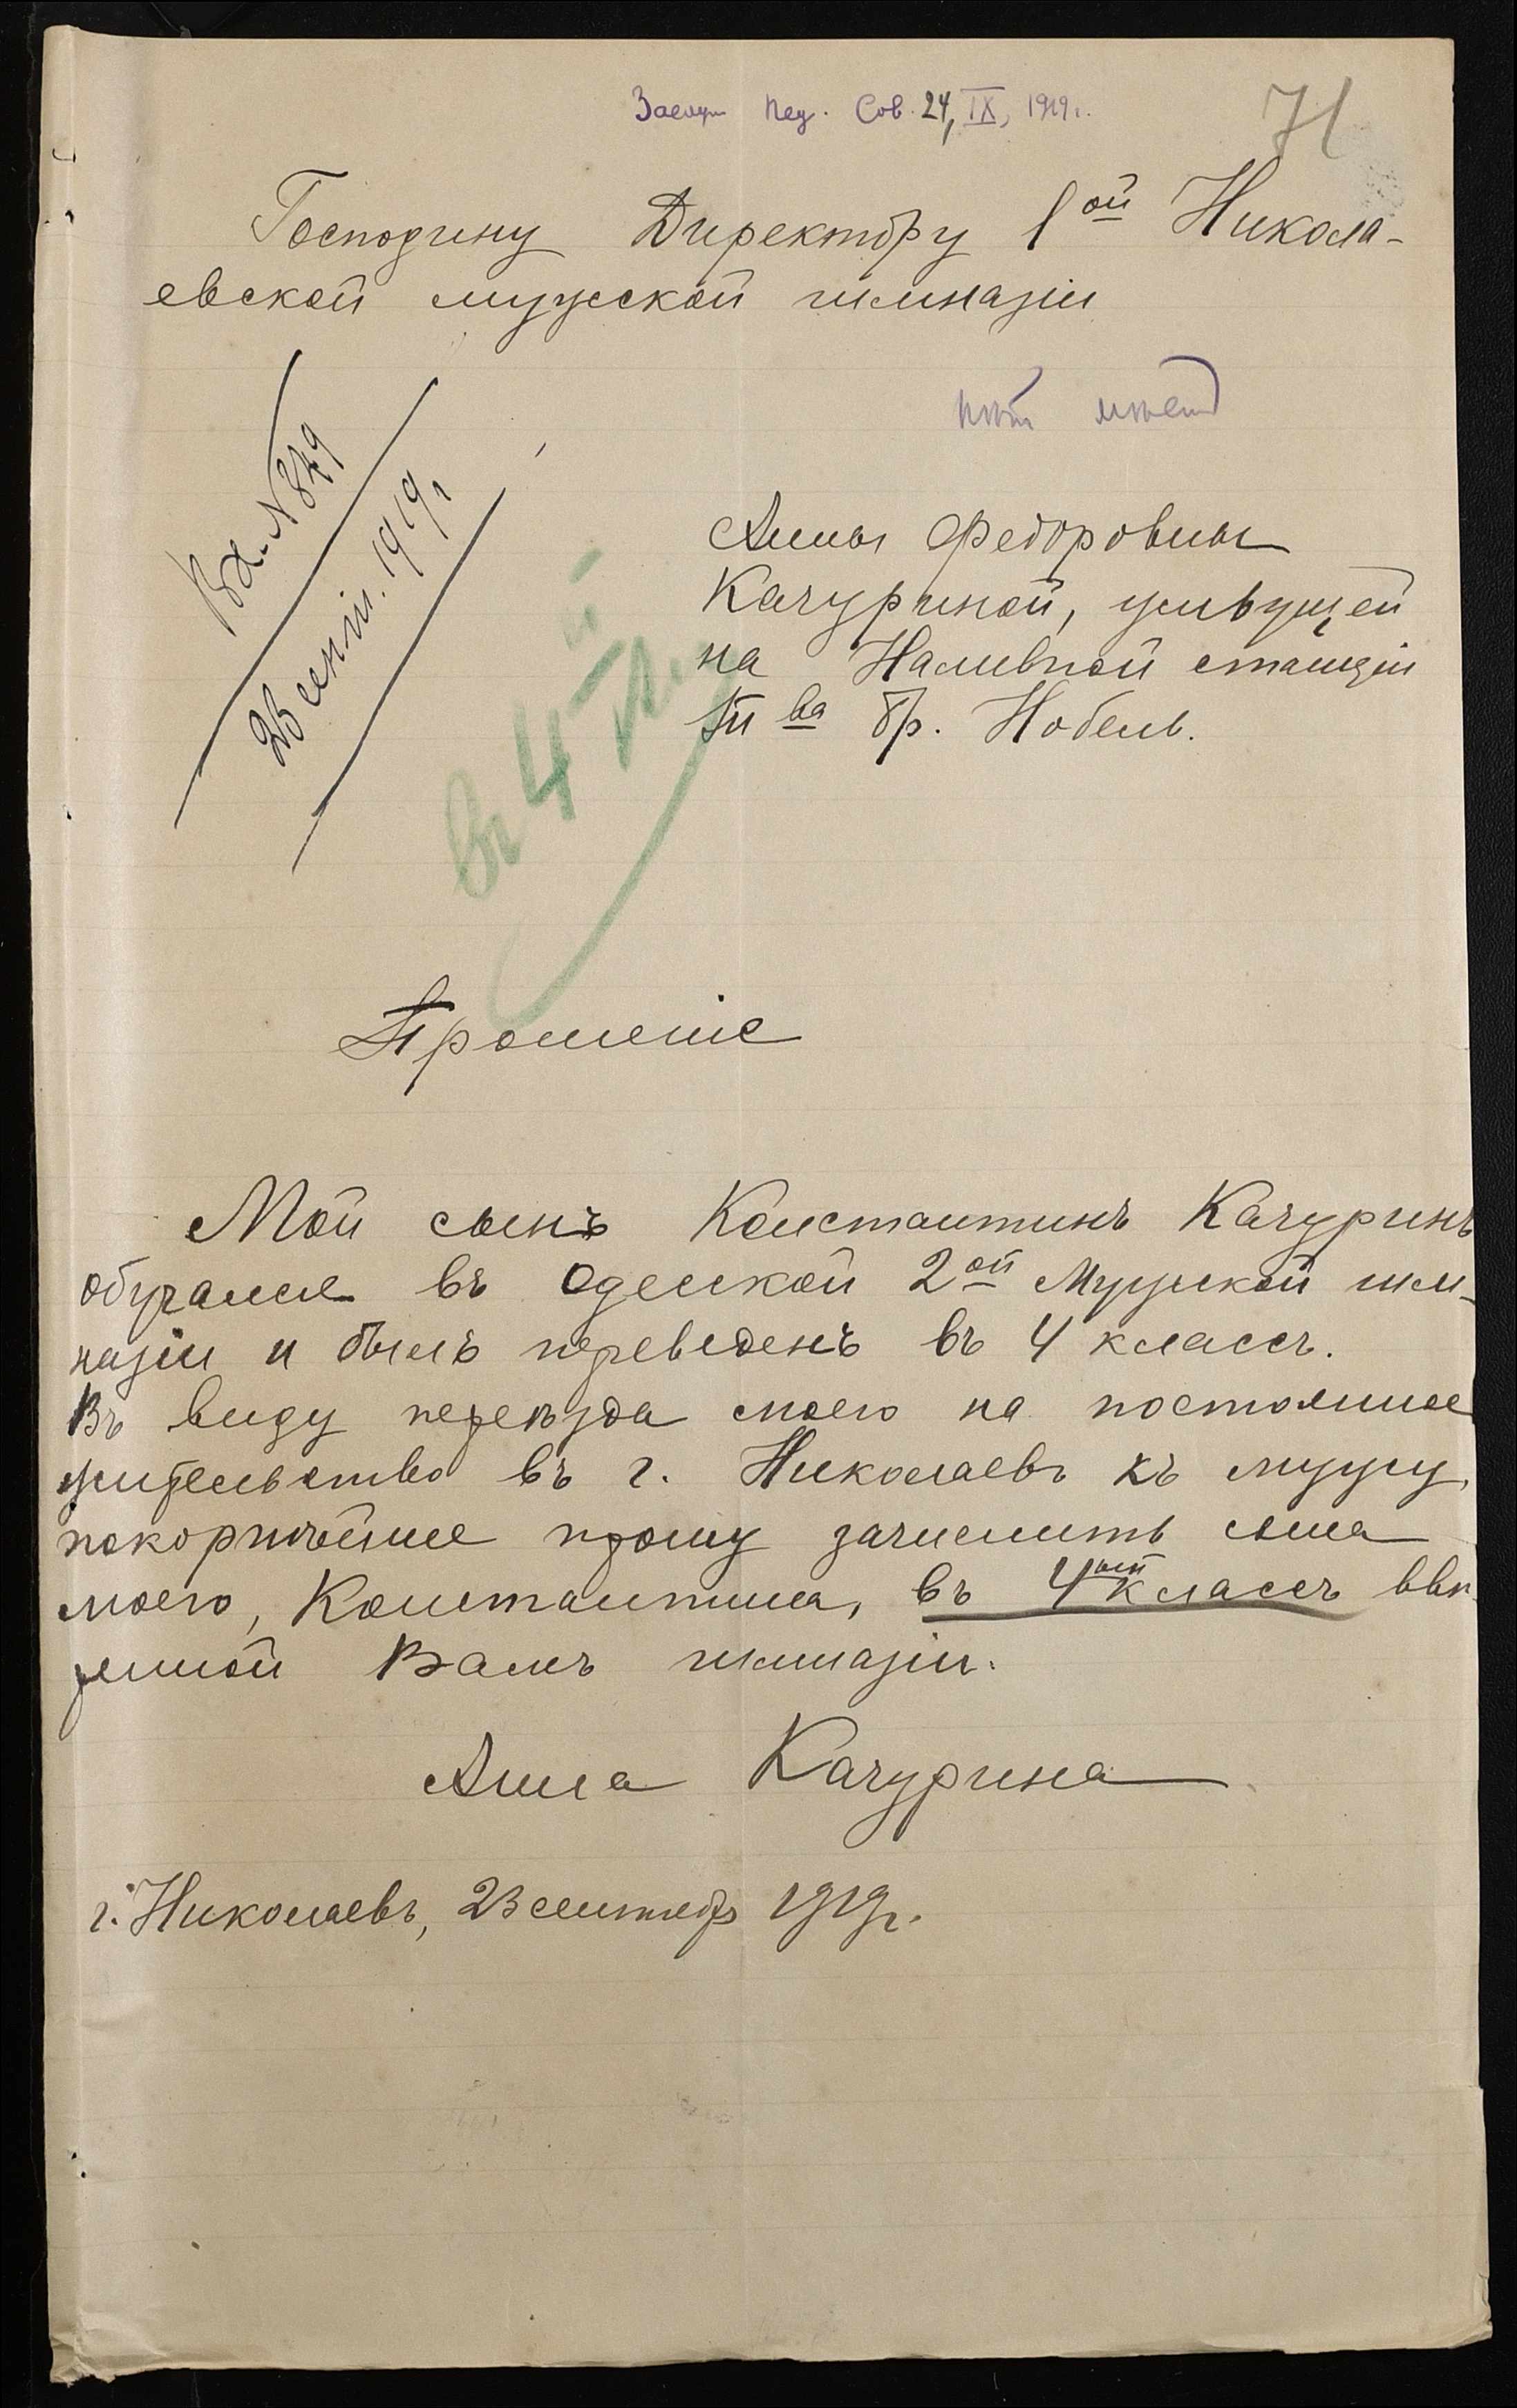 Заслуш Пед. Сов. 24, IX, 1919 г.
71
Господину Директору 1ой Никола-
евской мужской гимназіи
нѣтъ
Вх. N 849
23 сент. 1919 г
Анны Федоровны
Качуриной, живущей
на Наливной станціи
Т ва бр. Нобель.
въ 4й кл.
Прошеніе
Мой сынъ Константинъ Качуринъ
обучался въ Одесской 2ой Мужской гим-
назіи и былъ переведенъ въ 4 классъ.
Въ виду переѣзда моего на постоянное
жительство въ г. Николаевъ къ мужу,
покорнѣйше прошу зачислить сына
моего, Константина, въ 4ый классъ ввѣ-
ренной Вамъ гимназіи.
Анна Качурина
г. Николаевъ, 23 сентябр 1919 г.